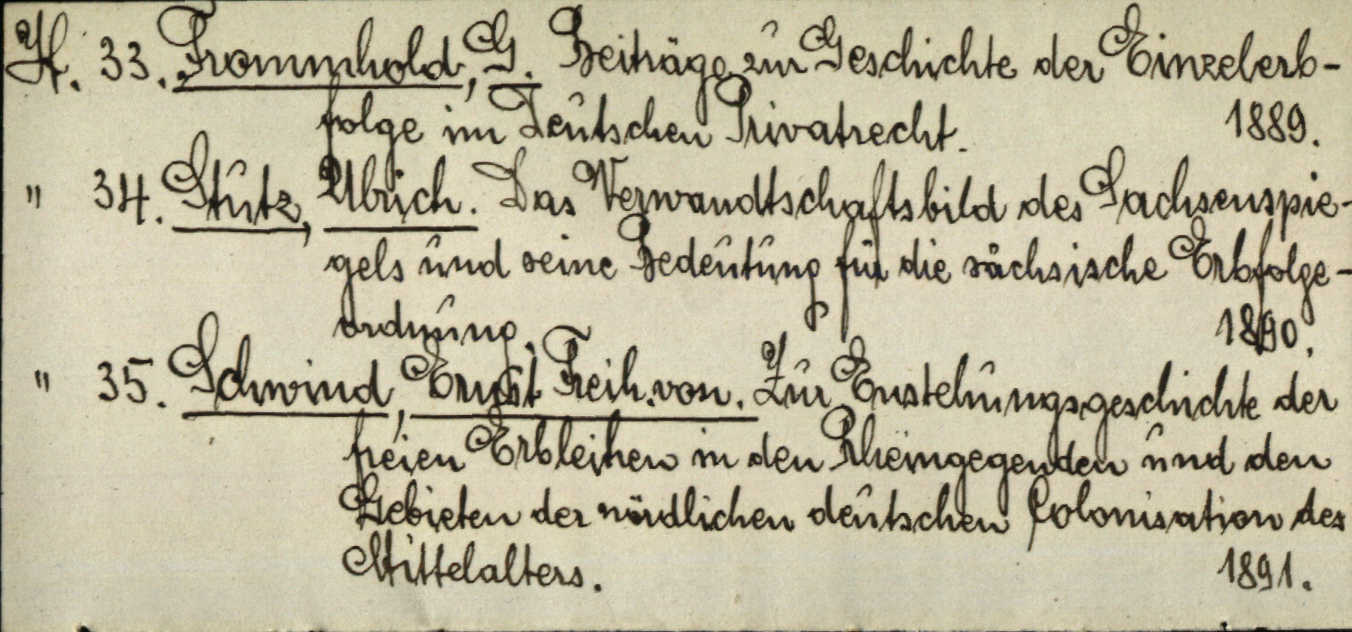 H. 33. Frommhold, G. Beiträge zur Geschichte der Einzelerb-
folge im Deutschen Privatrecht. 1889.
" 34. Stutz, Ulrich. Das Verwandtschaftsbild des Sachsenspie-
gels und seine Bedeutung für die sächsische Erbfolge-
ordnung. 1890.
" 35. Schwind, Ernst Freih. von. Zur Enstehungsgeschichte der
freien Erbleihen in den Rheingegenden und den
Gebieten der nördlichen deutschen Colonisation des
Mittelalters. 1891.